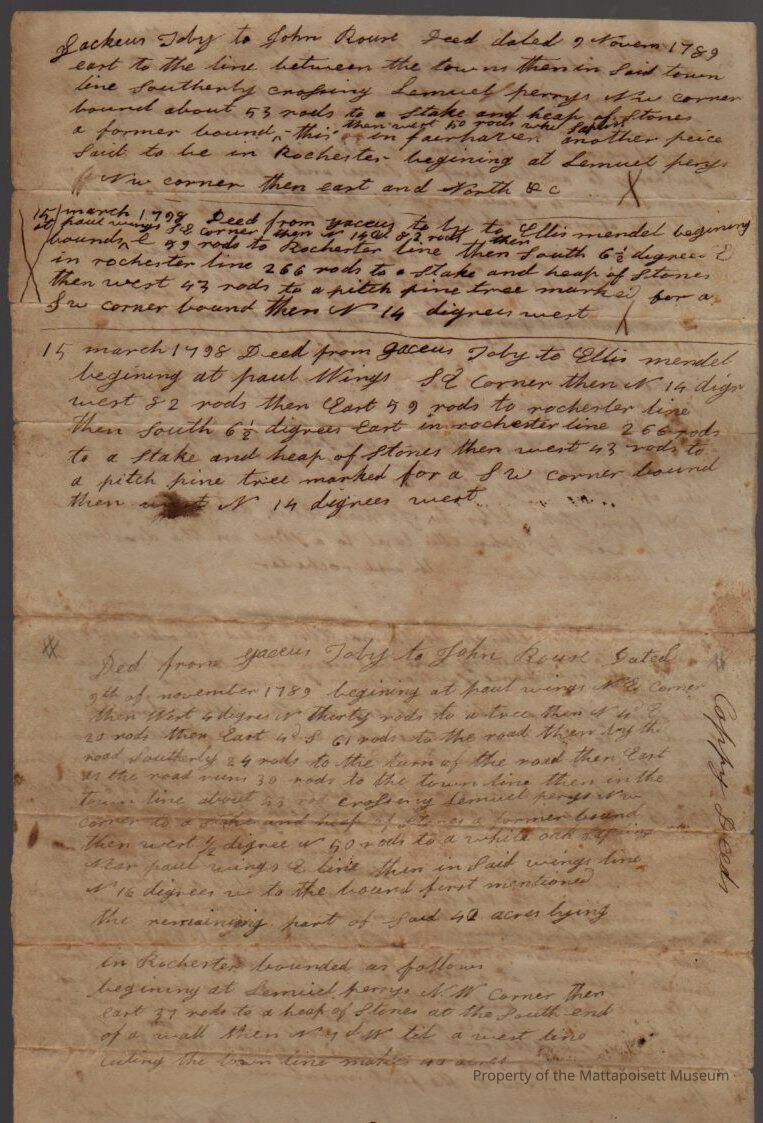 Zackeus Toby to John Rouse Deed dated 9 Novem 1789
east to the line between the towns then in Said town
line Southerly crossing Lemuel perrys Nw corner
bound about 53 rods to a Stake and heap of Stones
then west 50 rods
a former bound, this in fairhaven another peice
Said to be in Rochester begining at Lemuel perys
Nw corner then east and North &c X
15 march 1798 Deed from yaceus to by to Ellis mendel begining
at paul wings S E corner then N 14 W 82 rods then
bound E 59 rods to Rochester line then South 6½ degrees E
in rochester line 266 rods to a Stake and heap of Stones
then west 43 rods to a pitch pine tree marked for a
Sw corner bound then N 14 degrees west
15 march 1798 Deed from yaceus Toby to Ellis mendel
begining at paul Wings S E Corner then N 14 digr
west 82 rods then East 59 rods to rochester line
then South 6½ digrees East in rochester line 266 rods
to a Stake and heap of Stones then west 43 rods to
a pitch pine tree marked for a S w corner bound
then N 14 degrees west
Ded from yaceus Toby to John Rouse Dated
9th of november 1789 begining at paul wings N E Corner
then West 4 degres N thirty rods to a tree then N 4d E
20 rods then East 4d S 61 rods to the road then by the
road Southerly 24 rods to the turn of the road then East
as the road runs 30 rods to the town line then in the
town line about 53 rod crossing Lemuel perys Nw
corner to a stake and heap of Stones a former bound
then west ½ digree N 50 rods to a white oak
Near paul wings E line then in Said wings line
N 16 digrees w to the bound first mentioned
the remaining part of Said 40 acres lying
in Rochester bounded as follows
begining at Lemuel perrys N.W. Corner then
East 37 rods to a heap of Stones at the South end
of a wall then N d W til a west line
cuting the town line makes acres
Coppy Deeds
Property of the Mattapoisett Museum